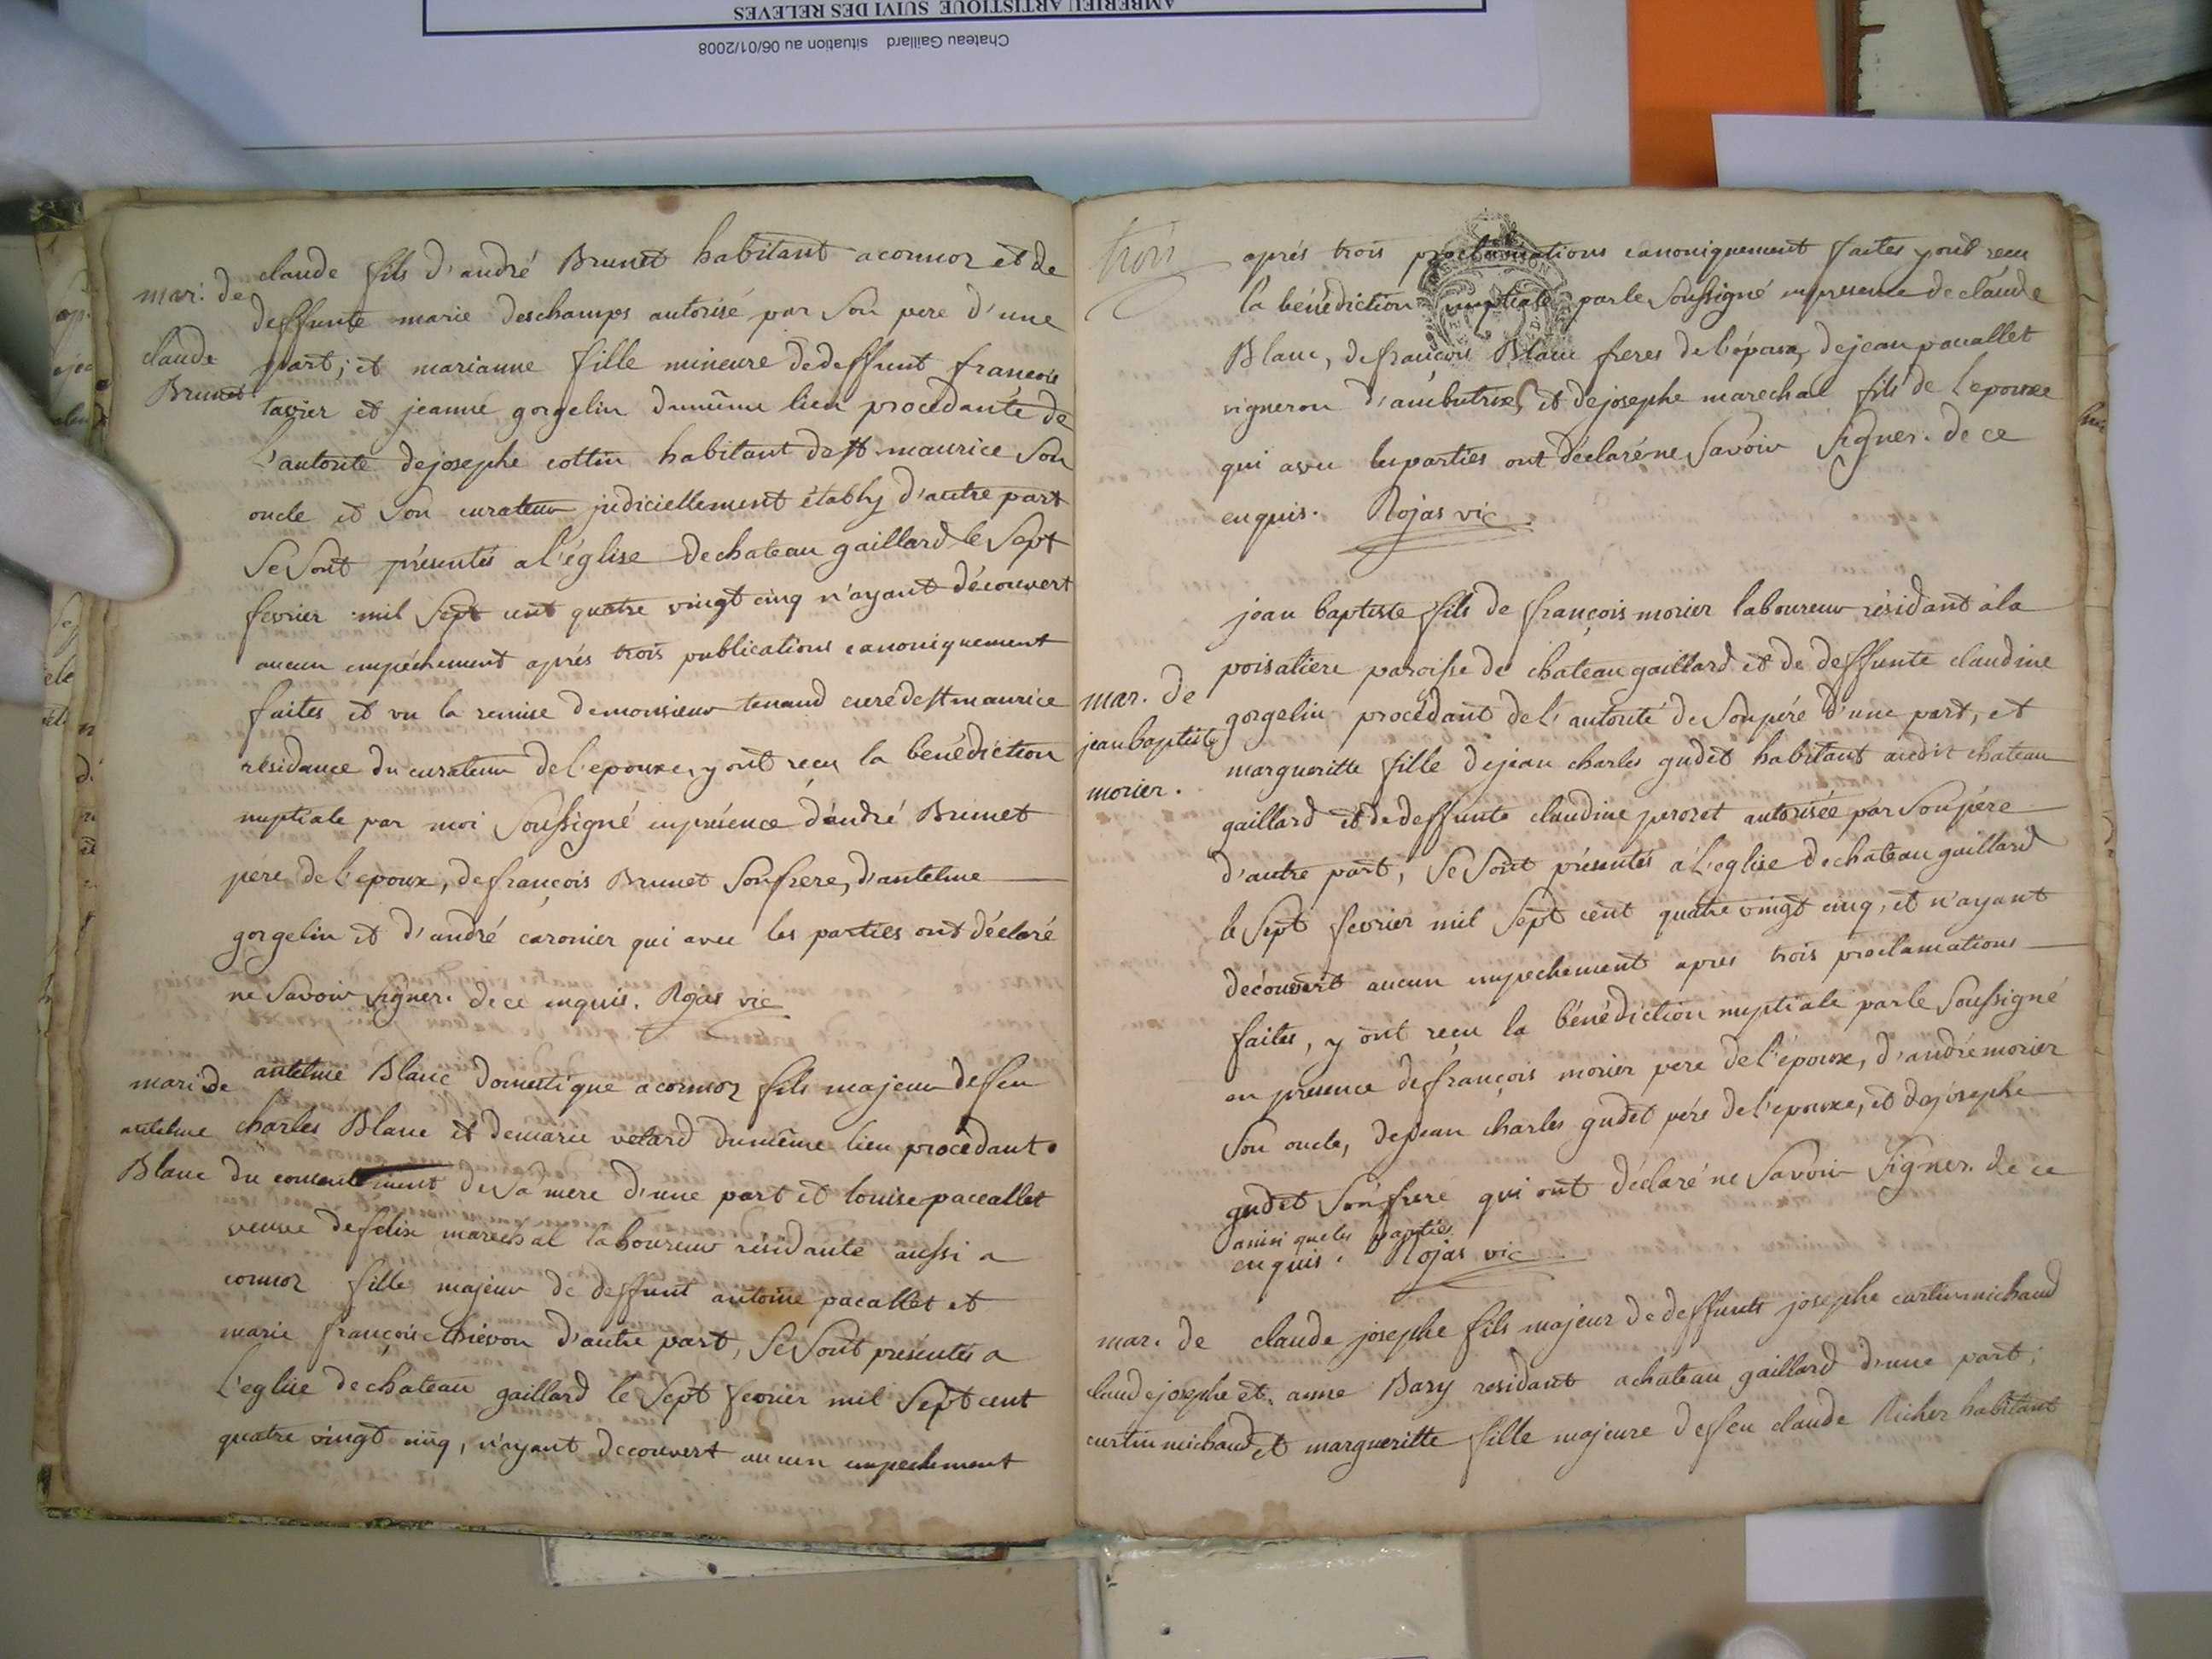 AMBERIEU ARTISTIQUE SUIVI DES RELEVES
Chateau Gaillard situation au 06/01/2008
mar: de
claude
Brunet
claude fils d'andré Brunet habitant a cormoz et de
deffunte marie deschamps autorisé par Son pere d'une
part; et marianne fille mineure de deffunt françois
tavier et jeanne gorgelin du même lieu procedante de
L'autorité de josephe cottin habitant de st maurice Son
oncle et Son curateur judiciellement établÿ d'autre part
Se Sont présentés a L'église de chateau gaillard le Sept
fevrier mil Sept cent quatre vingt cinq n'ayant découvert
aucun empéchement aprés trois publications canoniquement
faites et vu la remise de monsieur tenand curé de st maurice
résidance du curateur de l'epouxe, y ont reçu la bénédiction
nuptiale par moi Soussigné en présence d'andré Brunet
pére de l'epoux, de françois Brunet Son frere, d'antelme
gorgelin et d'andré caronier qui avec les parties ont déclaré
ne Savoir Signer. de ce enquis. Rojas vic
mari: de
antelme
Blanc
antelme Blanc domestique a cormoz fils majeur de feu
charles Blanc et de marie velard du même lieu procédant
du consentement de Sa mere d'une part et louise pacallet
veuve de felix maréchal laboureur résidante aussi a
cormoz fille majeur de deffunt antoine pacallet et
marie françoise thiévon d'autre part, Se Sont présentés a
L'eglise de chateau gaillard le Sept fevrier mil Sept cent
quatre vingt cinq, n'ayant decouvert aucun empechement
trois
aprés trois proclamations canoniquement faites y ont reçu
la bénédiction nuptiale par le Soussigné en presence de claude
Blanc, de françois Blanc freres de l'époux, de jean pacallet
vigneron d'ambutrix, et de josephe marechal fils de L'epouxe
qui avec les parties ont déclaré ne Savoir Signer. de ce
enquis. Rojas vic
mar. de
jean baptiste
morier.
jean baptiste fils de françois morier laboureur résidant à la
poisatiere paroisse de chateau gaillard et de deffunte claudine
gorgelin procédant de l'autorité de Son pére d'une part, et
margueritte fille de jean charles gudet habitant audit chateau
gaillard et de deffunte claudine perozet autorisée par Son pére
d'autre part, Se Sont présentés a L'eglise de chateau gaillard
le Sept fevrier mil Sept cent quatre vingt cinq, et n'ayant
découvert aucun empechement aprés trois proclamations
faites, y ont reçu la bénédiction nuptiale par le Soussigné
en presence de françois morier pere de l'époux, d'andré morier
Son oncle, de jean charles gudet pére de l'epouxe, et de josephe
gudet Son frere qui ont déclaré ne Savoir Signer. de ce
ainsi que les parties
enquis. Rojas vic
mar. de
claude josephe
curtin michaud
claude josephe fils majeur de deffunts josephe curtin michaud
et anne Bary residant a chateau gaillard d'une part;
et margueritte fille majeure de feu claude Richer habitant